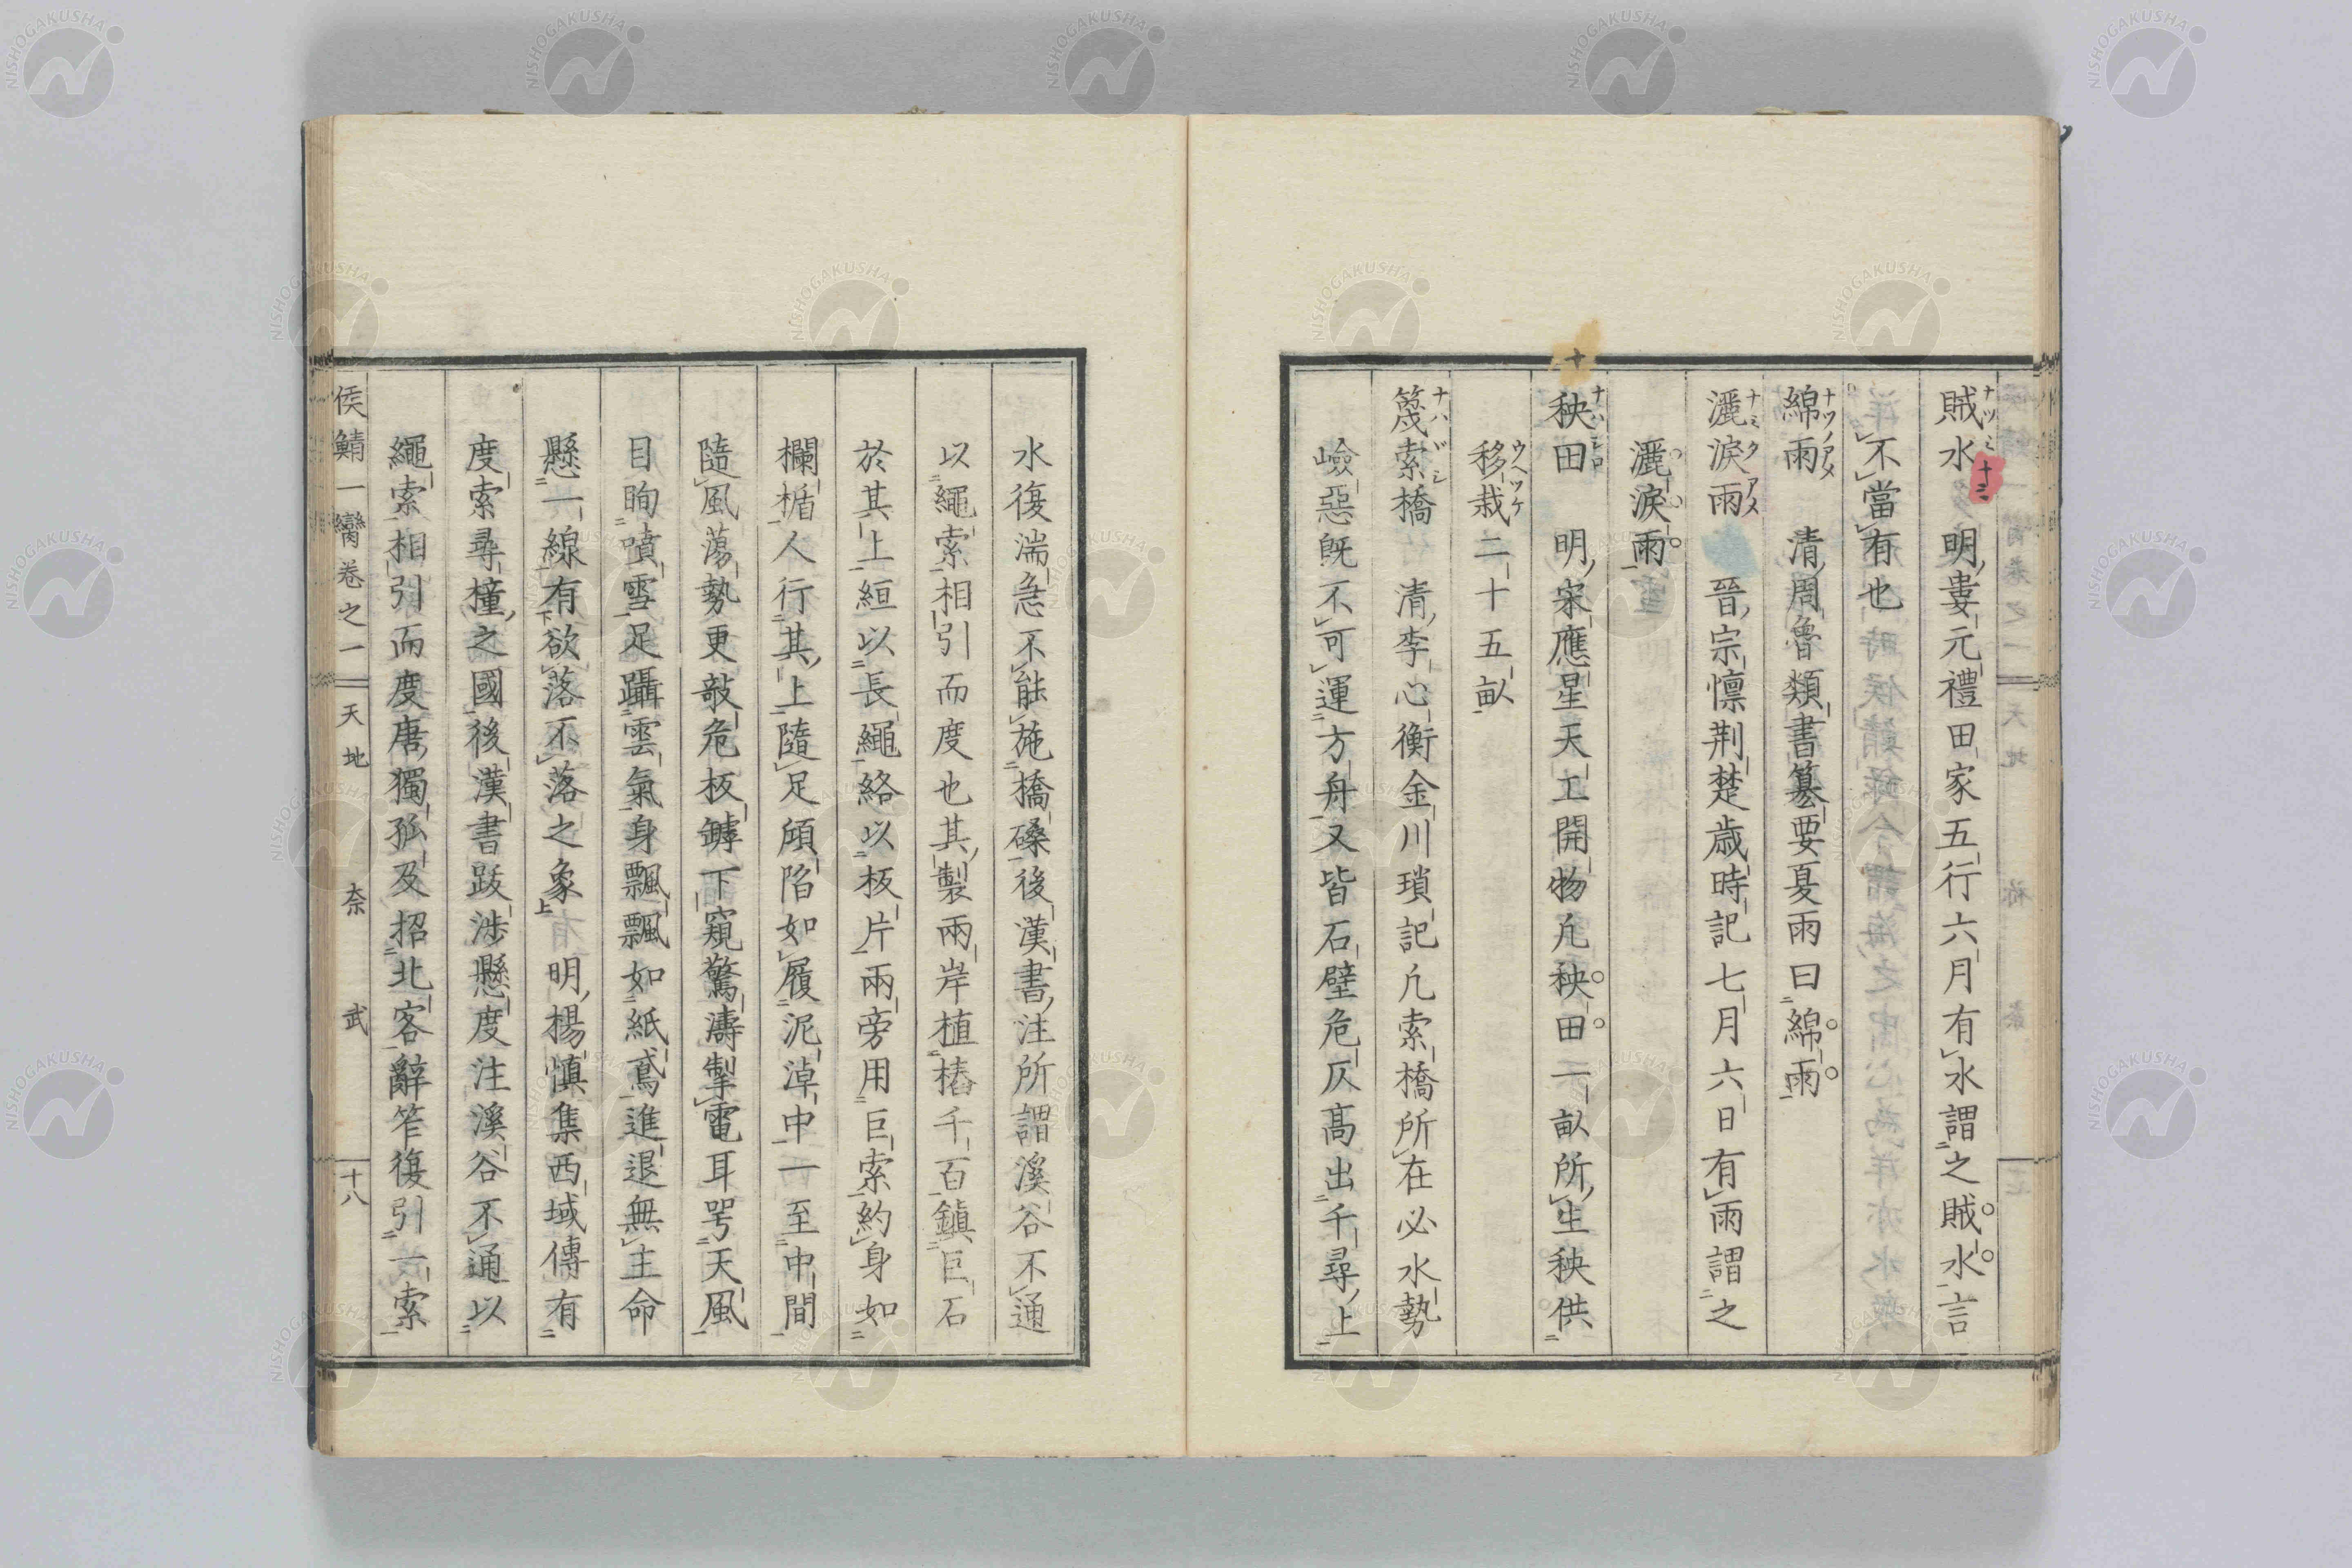 賊水　明婁元禮田家五行六月有水謂之賊水言
不當有也
綿雨　清周魯類書纂要夏雨曰綿雨
灑淚雨　晉宗懍荆楚歳時記七月六日有雨謂之
灑淚雨
秧田　明宋應星天工開物凢秧田一畝所生秧供
移栽二十五畝
篾索橋　清李心衡金川瑣記凢索橋所在必水勢
嶮惡旣不可運方舟又皆石壁危仄髙出千尋上
水復湍急不能施橋磉後漢書注所謂溪谷不通
以繩索相引而度也其製兩岸植樁千百鎮巨石
於其上絙以長繩絡以板片兩旁用巨索約身如
欄楯人行其上隨足頎陷如履泥淖中一至中間
隨風蕩勢更敧危板罅下窺驚濤掣電耳咢天風
目眴噴雪足躡雲氣身飄飄如紙鳶進退無主命
懸一線有欲落不落之象明楊慎集西域傳有
度索尋橦之國後漢書跋涉懸度注溪谷不通以
繩索相引而度唐獨孤及招北客辭笮復引一索
侯鯖一臠卷之一　天地　奈　武　十八
ナツミ
十二
ナツノアメ
ナミタアメ
十
ナハシロ
ウヘツケ
ナハバシ
NISHOGAKUSHA